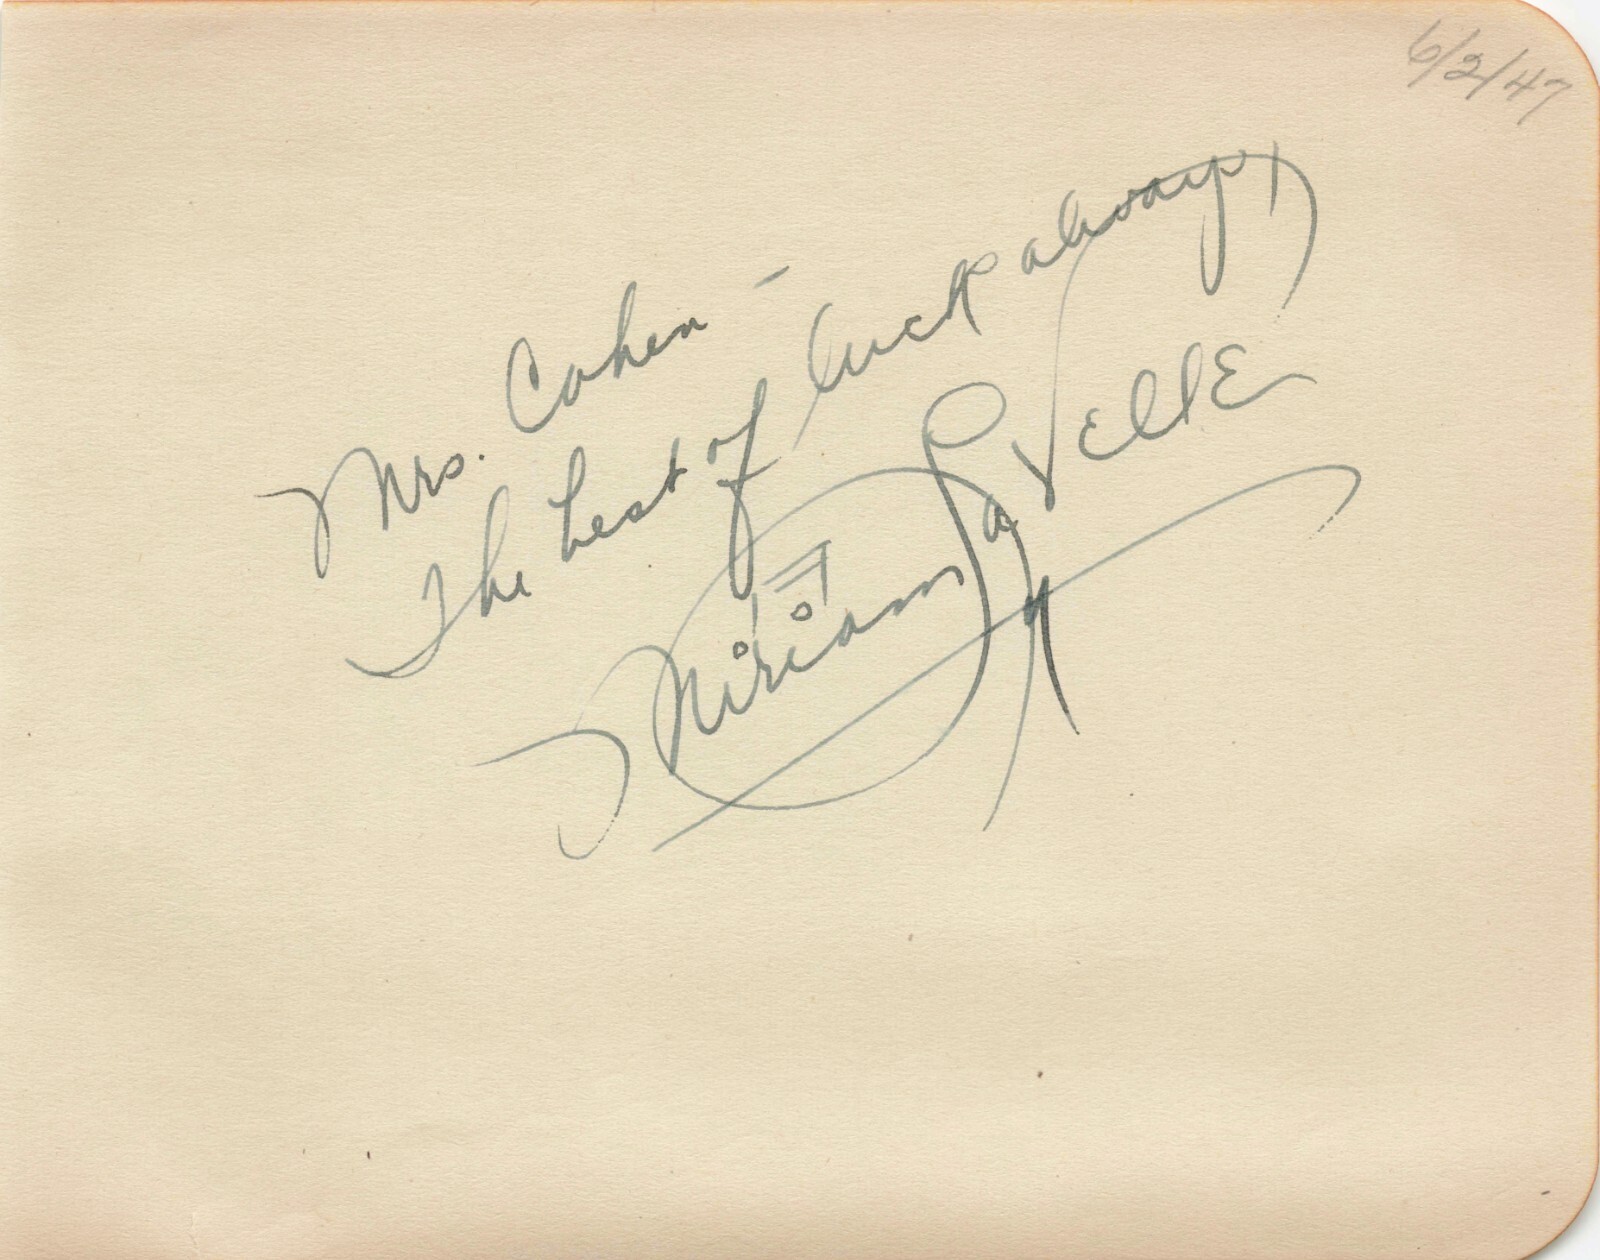 6/2/47
Mrs. Cohen –
The best of luck always,
Miriam LaVelle